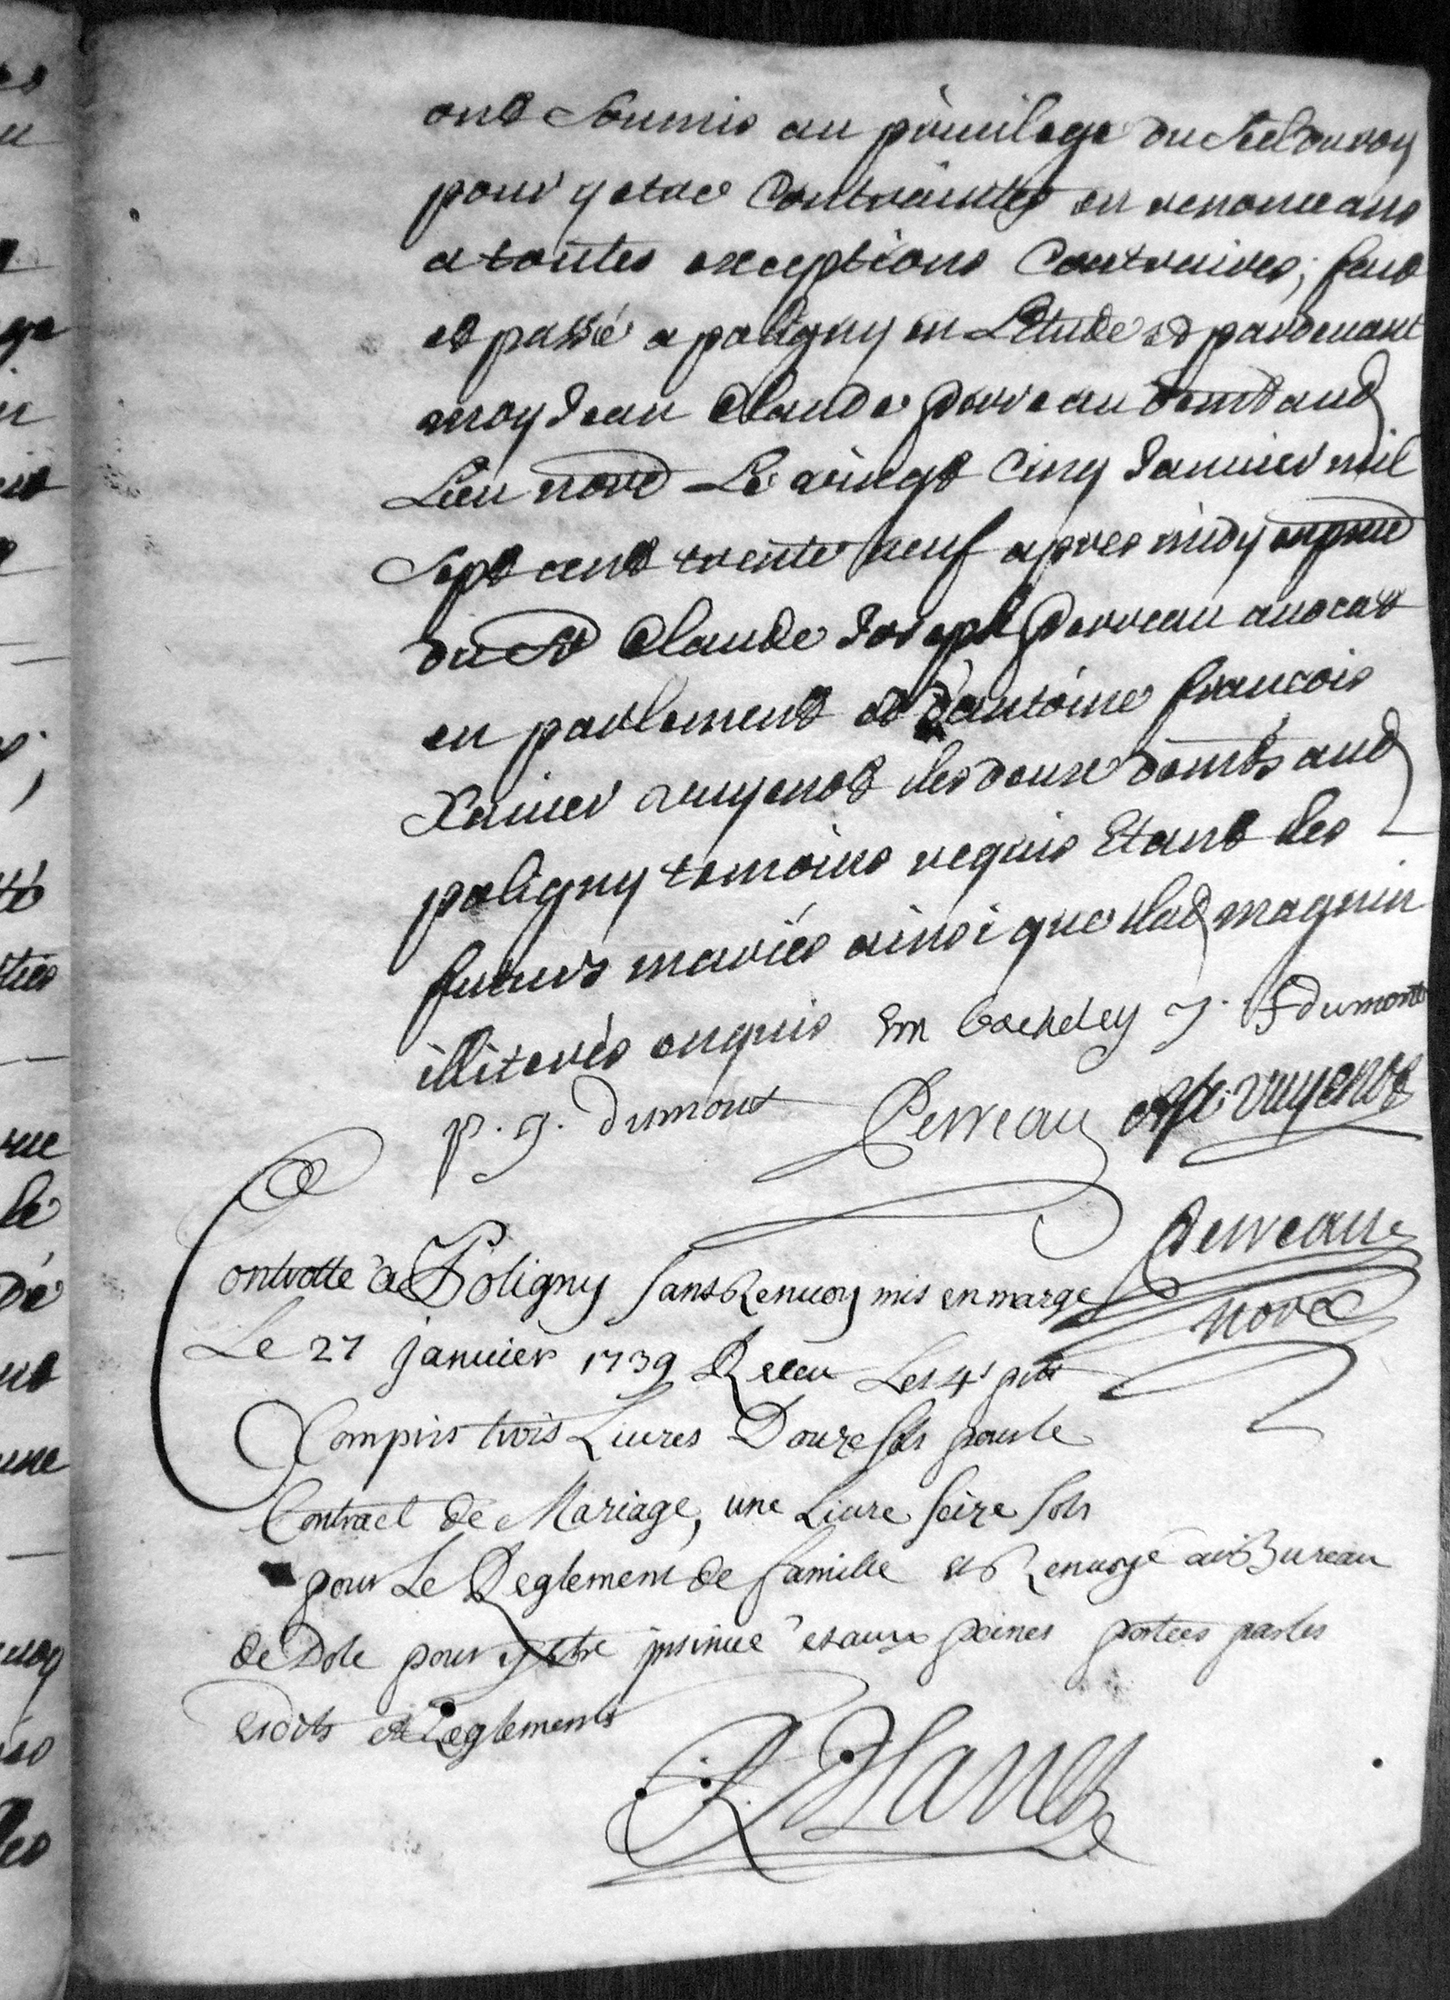 ont soumis au privilege du scel du roy
pour y etre contraintes en renonceans
a toutes exceptions contraires, fait
et passé a poligny en L'etude et pardevant
moy Jean Claude perreau demt aud
Lieu nore Le vingt cinq Janvier mil
Sept cent trente neuf apres midy en pnce
du Sr Claude Joseph perreau avocat
en parlement et d'antoine francois
Xavier vuyenot les deux demts aud
poligny temoins requis Etant les
futurs mariés ainsi que lad magnin
illiterés enquis Em bacheley J. F dumont
p. J. dumont Perreau vuyenot
Perreau
nore
Controllé à Poligny sans Renvoy mis en marge
Le 27 janvier 1739 Receu Les 4s pr
Compris trois Livres Douze sols pour le
Contract de Mariage, une Livre seize sols
pour Le Reglement de famille et Renvoyé au Bureau
de Dole pour y etre insinué et aux peines portées par les
Edits et Reglements